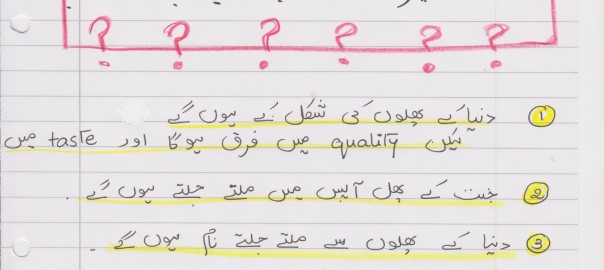 ? ? ? ? ? ?
① دنیا کے پھلوں کی شکل کے ہوں گے
لیکن quality میں فرق ہوگا اور taste میں
② جنت کے پھل آپس میں ملتے جلتے ہوں گے .
③ دنیا کے پھلوں سے ملتے جلتے نام ہوں گے .